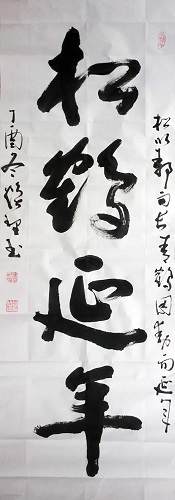 松以静而长青鹤因动而延年
松鹤延年
丁酉冬